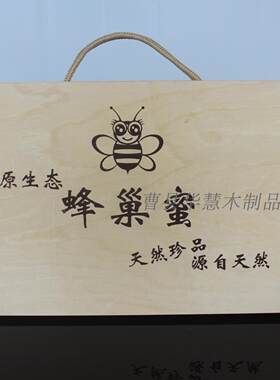 原生态
蜂巢蜜
曹县华慧木制品
天然珍品
源自天然